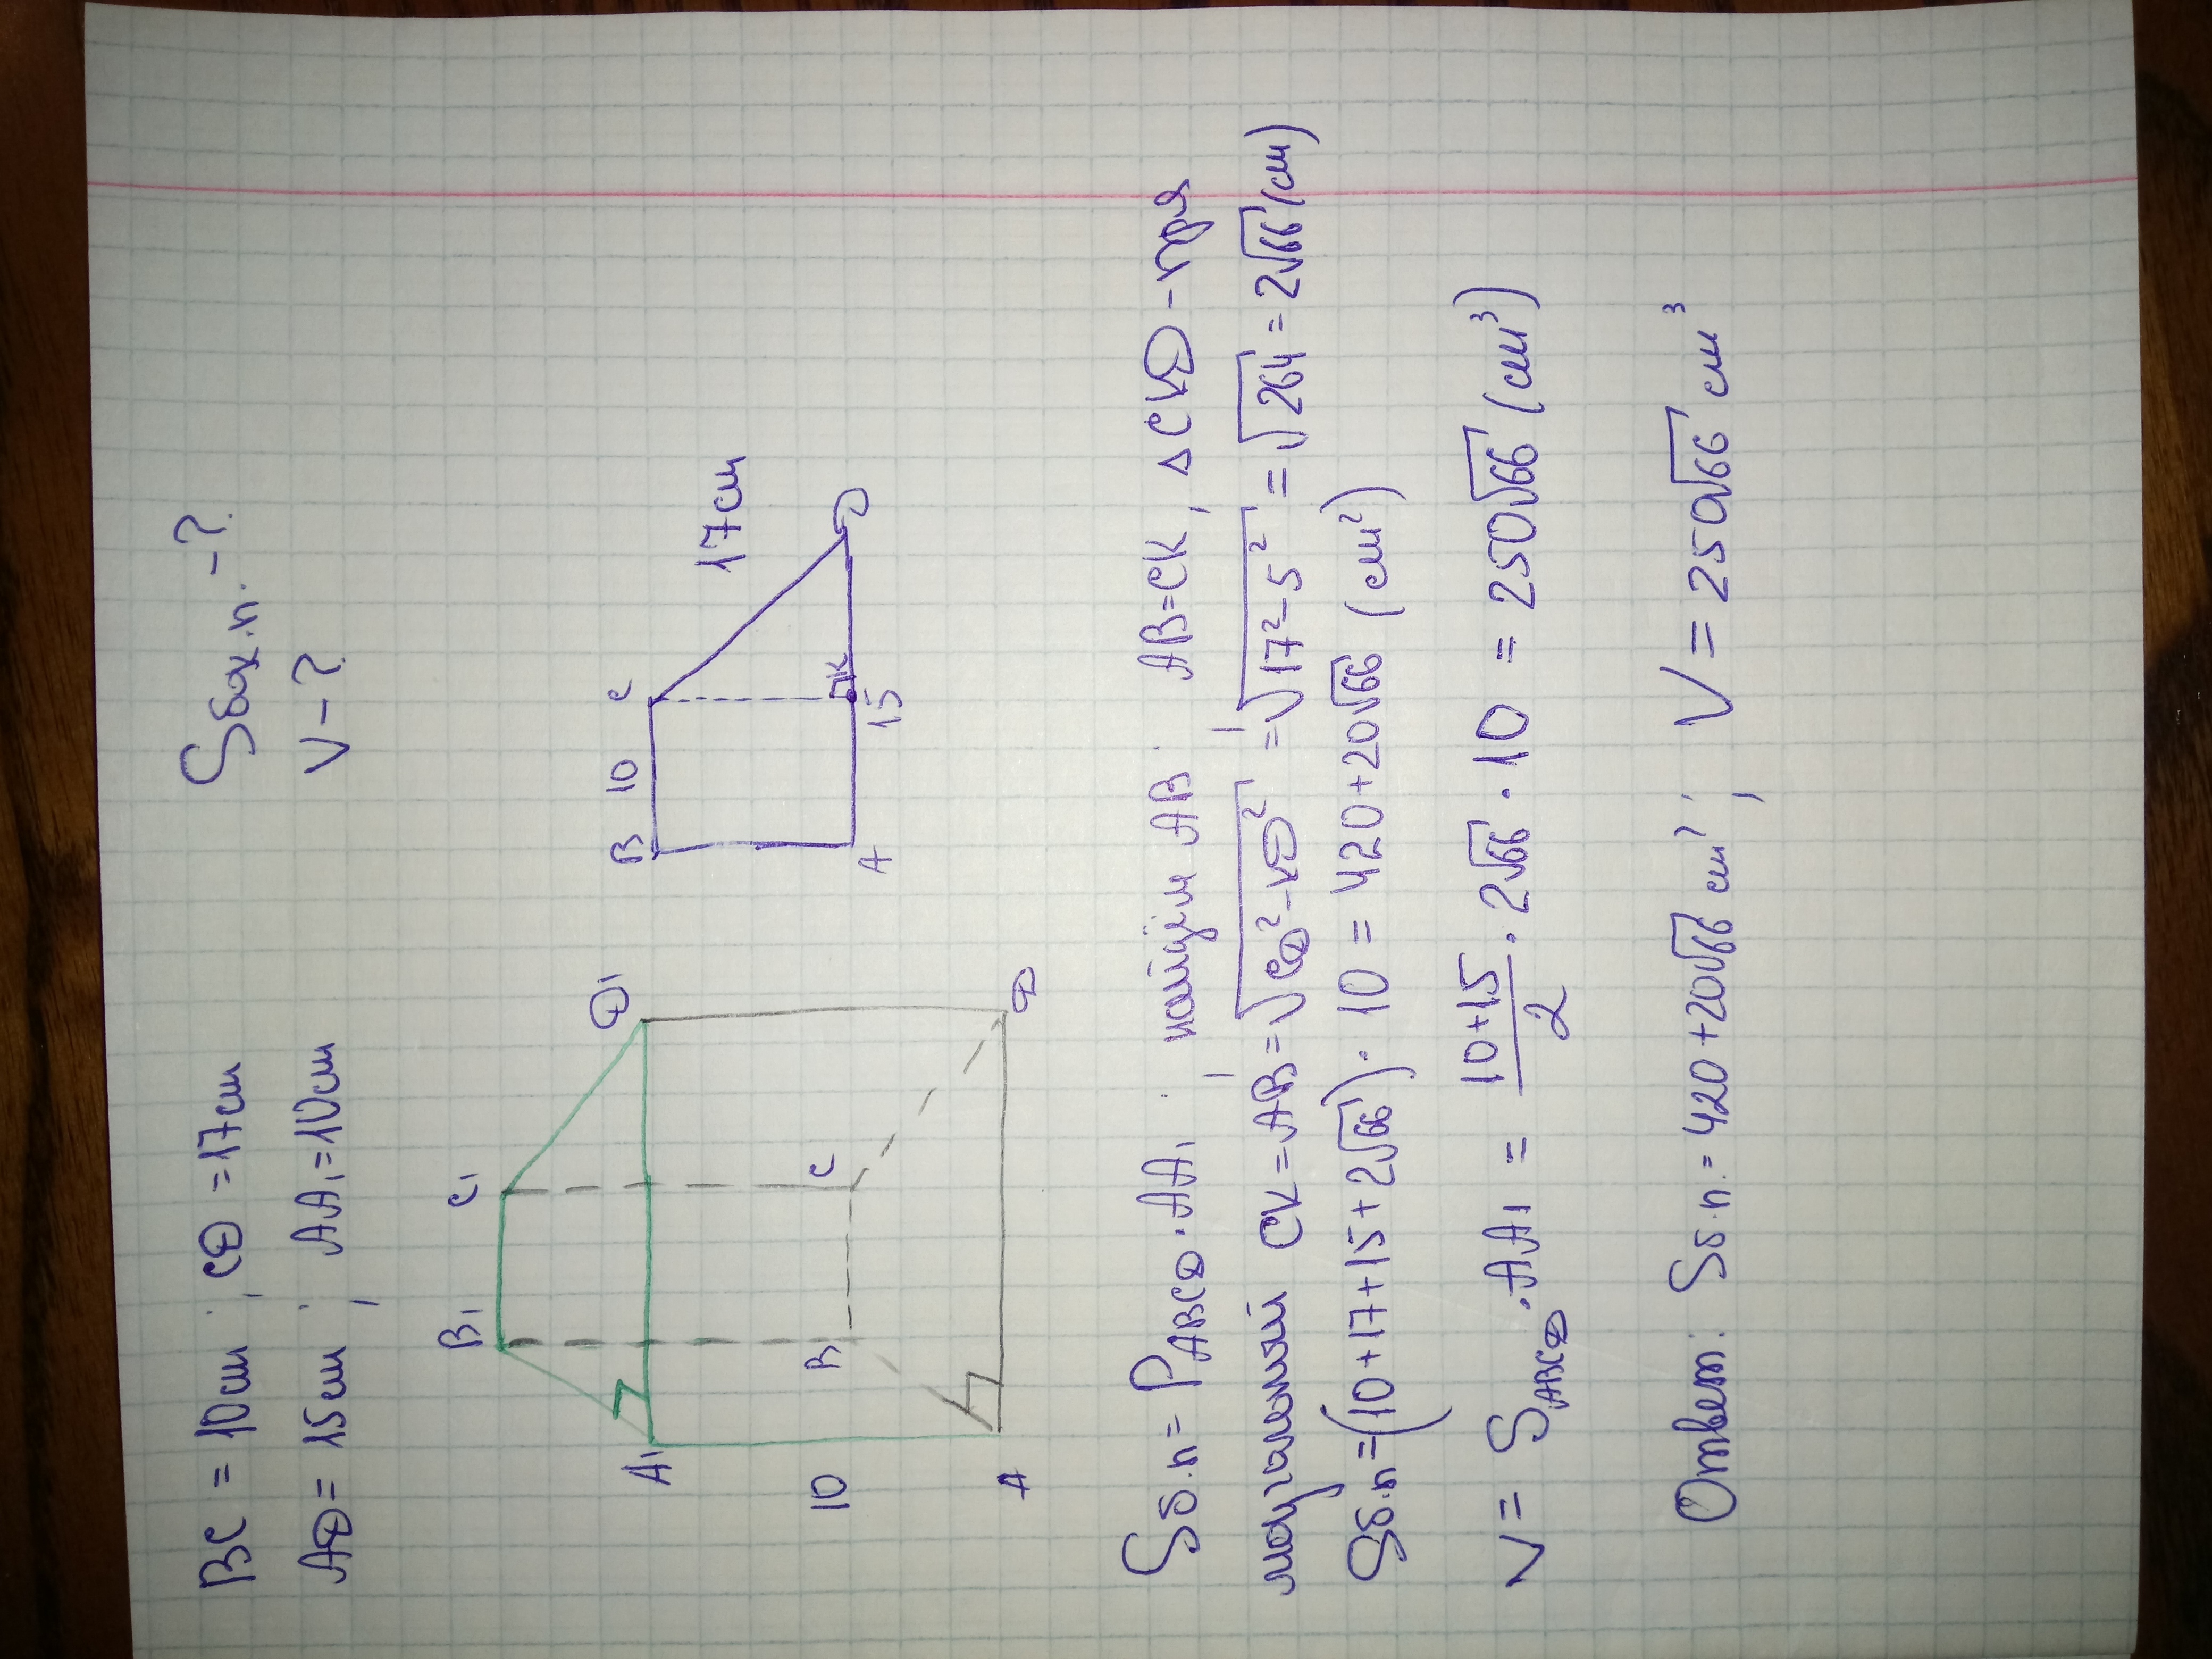 BC = 10см ; CD = 17см Sбок.п. - ?
AD = 15см ; AA₁ = 10см V - ?
B₁ C₁
A₁ D₁
10
B C
A D
B 10 C
17см
K
A 15 D
Sб.п = P_ABCD · AA₁ ; найдём AB: AB=CK, △CKD - пря
моугольный CK=AB=√(CD²-KD²) = √(17²-5²) = √264 = 2√66 (см)
Sб.п = (10+17+15+2√66) · 10 = 420+20√66 (см²)
V = S_ABCD · AA₁ = (10+15)/2 · 2√66 · 10 = 250√66 (см³)
Ответ: Sб.п. = 420+20√66 см² ; V = 250√66 см³